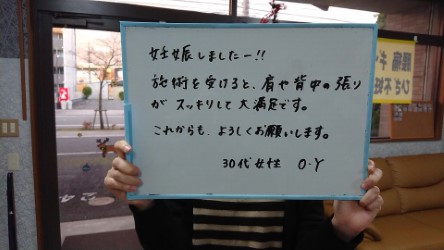 妊娠しましたー!!
施術を受けると、肩や背中の張り
がスッキリして大満足です。
これからも、よろしくお願いします。
30代女性 O.Y